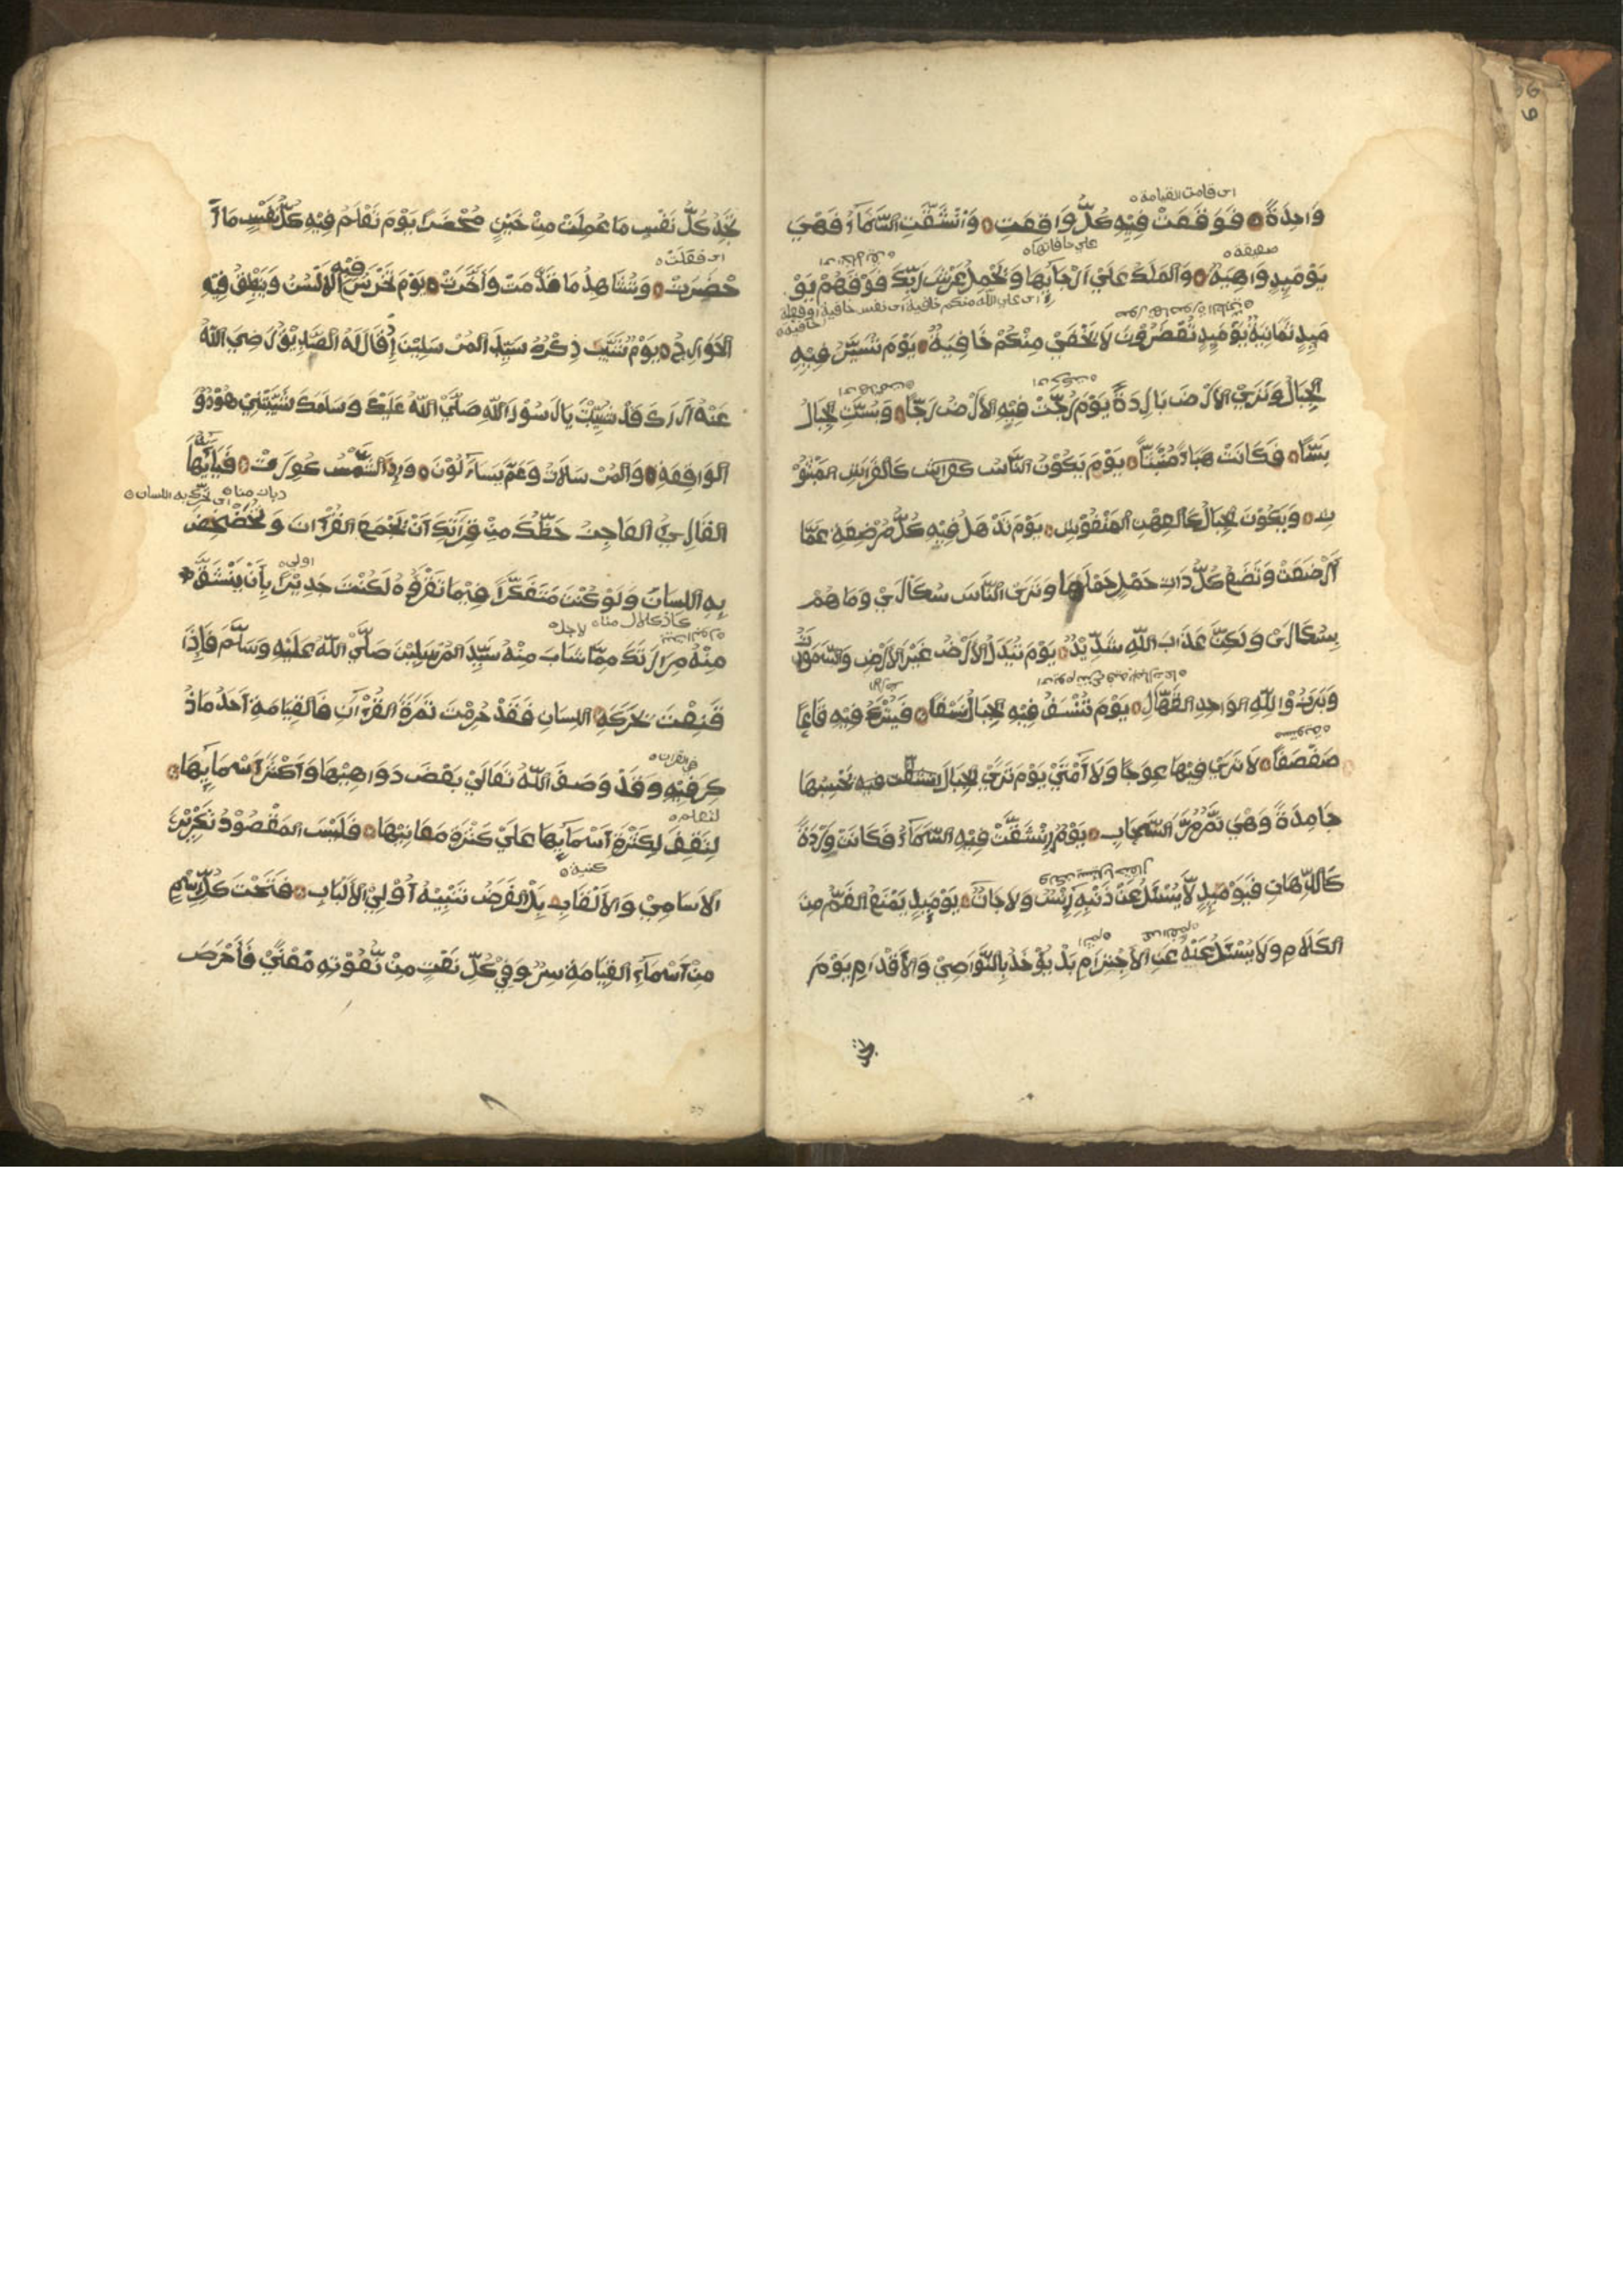 اى قامت القيامة
وَاحِدَةً فَوَقَعَتْ فِيْهِ كُلُّ وَاقِعَتِ وَانْشَقَّتِ السَّمَآءُ فَهْيَ
ضعيفة
على حافاتها
يَوْمَيِذٍ وَاهِيَةٌ وَالمَلَكُ عَلَيْ اَرْجَآيِهَا وَيَحْمِلُ عَرْشَ رَبِّكَ فَوْقَهُمْ يَوْ
اى على الله منكم خافية اى نفس خافية او فعلة
خافية
مَيِذٍ ثَمَانِيَةٌ يَوْمَيِذٍ تُعْرَضُوْنَ لَا يَخْفَيْ مِنْكُمْ خَافِيَةٌ يَوْمَ تُسَيَّرُ فِيْهِ
الجِبَالُ وَتَرَيْ الاَرْضَ بَارِدَةً يَوْمَ رُجَّتْ فِيْهِ الاَرْضُ رَجًّا وَبُسَّتِ الجِبَالُ
بَسًّا فَكَانَتْ هَبَاءً مُنْبَثًّا يَوْمَ يَكُوْنُ النَّاسُ كَفَرَاشِ كَالفَرَاشِ المَبْثُوْ
ثِ وَيَكُوْنَ الجِبَالُ كَالعِهْنِ المَنْفُوْشِ يَوْمَ تَذْهَلُ فِيْهِ كُلُّ مُرْضِعَةٍ عَمَّا
اَرْضَعَتْ وَتَضَعُ كُلُّ ذَاتِ حَمْلٍ حَمْلَهَا وَتَرَى النَّاسَ سُكَارَيْ وَمَا هُمْ
بِسُكَارَى وَلَكِنَّ عَذَابَ اللّٰهِ شَدِيْدٌ يَوْمَ تُبَدَّلُ الاَرْضُ غَيْرَ الاَرْضِ وَالسَّمَوٰتُ
وَبَرَزُوْا لِلّٰهِ الوَاحِدِ القَهَّارِ يَوْمَ تُنْسَفُ فِيْهِ الجِبَالُ نَسْفًا فَيُتْرَكُ فِيْهِ قَاعًا
مستوية
صَفْصَفًا لَا تَرَيْ فِيْهَا عِوَجًا وَلَا اَمْتًيْ يَوْمَ تَرَيْ الجِبَالَ فيه تَحْسِبُهَا
جَامِدَةً وَهْيَ تَمُرُّ مَرَّ السَّحَابِ يَوْمَ اِنْشَقَّتْ فِيْهِ السَّمَآءُ فَكَانَتْ وَرْدَةً
كَالدِّهَانِ فَيَوْمَيِذٍ لَّا يُسْئَلُ عَنْ ذَنْبِهِ اِنْسٌ وَلَا جَانٌّ يَوْمَيِذٍ يَمْنَعُ الفَمُّ مِنَ
الكَلَامِ وَلَا يُسْئَلُ عَنْهُ عَنِ الاَجْتِرَامِ بَلْ يُؤْخَذُ بِالنَّوَاصِيْ وَالاَقْدَامِ يَوْمَ
تجد
تَجِدُ كُلُّ نَفْسٍ مَا عَمِلَتْ مِنْ خَيْرٍ مُحْضَرًا يَوْمَ تَعْلَمُ فِيْهِ كُلُّ نَفْسٍ مَا اَ
اى فعلت
فيه
حْضَرَتْ وَتُشَاهِدُ مَا قَدَّمَتْ وَاَخَّرَتْ يَوْمَ تَخْرَسُ الاَلْسُنُ وَيَنْطِقُ فِيْهِ
الجَوَارِحُ يَوْمٌ شَيَّبَ ذِكْرُهُ سَيِّدَ المُرْسَلِيْنَ اِذْ قَالَ لَهُ الصَّدِيْقُ رَضِيَ اللّٰهُ
عَنْهُ اَرَاكَ قَدْ شِيْبْتَ يَا رَسُوْلَ اللّٰهِ صَلَّيْ اللّٰهُ عَلَيْكَ وَسَلَّمَكَ شَيَّبَتْنِيْ هُوْدُ وَ
الوَاقِعَةِ وَالمُرْسَلَاتُ وَعَمَّ يَتَسَاءَلُوْنَ وَاِذَا الشَّمْسُ كُوِّرَتْ فَيَآيُّهَا
اى تحرّك به اللسان
القَارِيُ العَاجِزُ حَظُّكَ مِنْ قِرَآئَتِكَ اَنْ تَجْمَعَ القُرْآنَ وَتُخَضْخِضَ
اولى
بِهِ اللِسَانَ وَلَوْ كُنْتَ مُتَفَكِّرًا فِيْمَا تَقْرَؤُهُ لَكُنْتَ جَدِيْرًا بِاَنْ يَنْشَقَّ
لاجل
مِنْهُ مِرَارَتُكَ مِمَّا شَابَ مِنْهُ سَيِّدُ المُرْسَلِيْنَ صَلَّيْ اللّٰهُ عَلَيْهِ وَسَلَّمَ فَاِذَا
قَنِعْتَ بِحَرَكَةِ اللِسَانِ فَقَدْ حُرِمْتَ ثَمَرَةَ القُرْآنِ فَالقِيَامَةِ اَحَدُ مَا ذُ
فى القران
كِرَ فِيْهِ وَقَدْ وَصَفَ اللّٰهُ تَعَالَيْ بَعْضَ دَوَاهِيْهَا وَاَكْثَرَ اَسْمَايِهَا
لتعلم
لِتَقِفَ لِكَثْرَةِ اَسْمَايِهَا عَلَيْ كَثْرَةِ مَعَانِيْهَا فَلَيْسَ المَقْصُوْدُ تَكْرِيْرَ
كنية
الاَسَامِيْ وَالاَلْقَابِ بَلْ الغَرَضُ تَنْبِيْهُ اُوْلِيْ الاَلْبَابِ فَتَحْتَ كُلِّ اِسْمٍ
مِنْ اَسْمَاءِ القِيَامَةِ سِرٌّ وَفِيْ كُلِّ نَعْتٍ مِنْ نُّعُوْتِهِ مَعْنًيْ فَاحْرِصْ